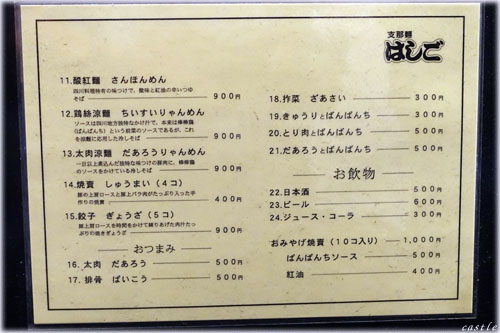 支那麺
はしご
11.酸紅麺 さんほんめん
四川料理特有の味つけで、酸味と紅油の辛いつゆ
そば 900円
12.鶏絲涼麺 ちいすいりゃんめん
ソースは四川地方独特なかけ汁で、本来は棒棒鶏
(ばんばんち)という前菜のソースであるが、これ
を麺に応用した冷しそば 900円
13.太肉涼麺 だあろうりゃんめん
一日以上煮込んだ独特な味つけの豚肉に、棒棒鶏
のソースをかけている冷しそば 900円
14.焼賣 しゅうまい(4コ)
豚の上肩ロースと豚上バラ肉がたっぷり入った手
作りの焼賣 400円
15.餃子 ぎょうざ(5コ)
豚上肩ロースを時間をかけて練りあげた肉汁たっ
ぷりの焼きぎょうざ 900円
おつまみ
16.太肉 だあろう 500円
17.排骨 ぱいこう 500円
18.搾菜 ざあさい 300円
19.きゅうりとばんばんち 300円
20.とり肉とばんばんち 500円
21.だあろうとばんばんち 500円
お飲物
22.日本酒 500円
23.ビール 600円
24.ジュース・コーラ 300円
おみやげ焼賣(10コ入り) 1,000円
ばんばんちソース 500円
紅油 400円
castle